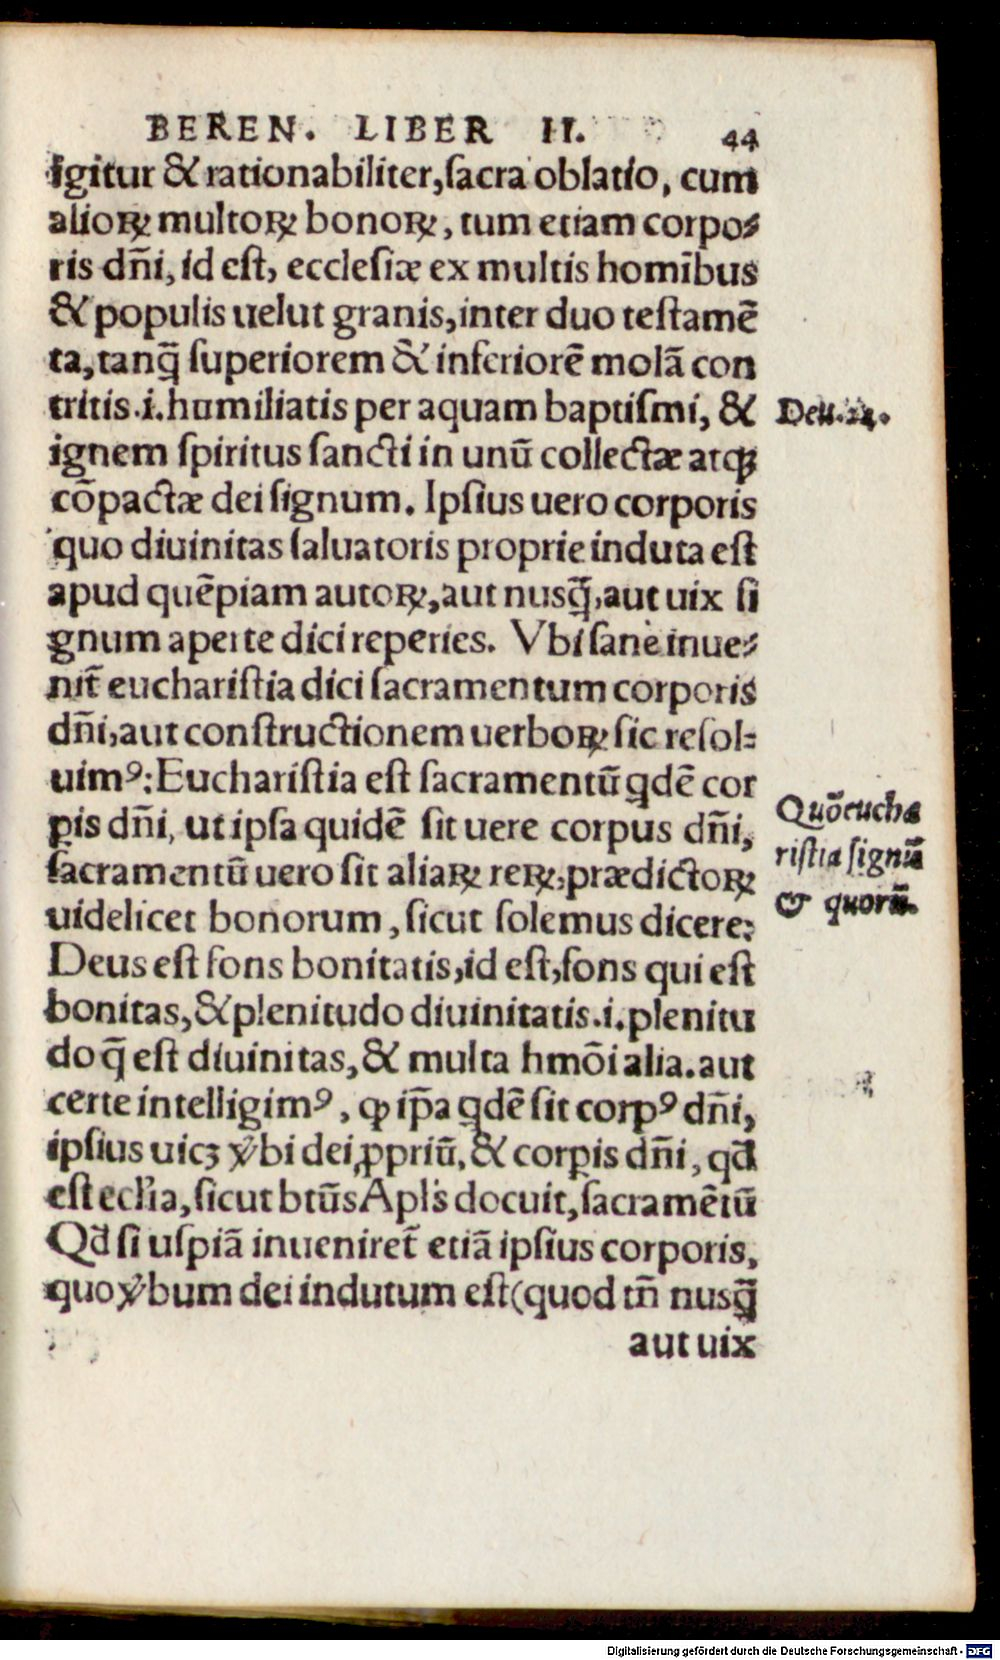 BEREN. LIBER II. 44
igitur & rationabiliter, ſacra oblatio, cum
alioꝝ multoꝝ bonoꝝ, tum etiam corpo⸗
ris dñi, id eſt, eccleſiæ ex multis homĩbus
& populis uelut granis, inter duo teſtamẽ
ta, tanq̃ ſuperiorem & inferiorẽ molã con
tritis .i. humiliatis per aquam baptiſmi, &
Deu. 24.
ignem ſpiritus ſancti in unũ collectæ atqꝫ
cõpactæ dei ſignum. Ipſius uero corporis
quo diuinitas ſaluatoris proprie induta eſt
apud quẽpiam autoꝝ, aut nusq̃, aut uix ſi
gnum aperte dici reperies. Vbi ſane inue⸗
nit̃ euchariſtia dici ſacramentum corporis
dñi, aut conſtructionem uerboꝝ ſic reſol⸗
uimꝰ: Euchariſtia eſt ſacramentũ qdẽ cor
ꝑis dñi, ut ipſa quidẽ ſit uere corpus dñi,
Quõ eucha
riſtia ſignũ
& quorũ.
ſacramentũ uero ſit aliaꝝ reꝝ, prædictoꝝ
uidelicet bonorum, ſicut ſolemus dicere:
Deus eſt fons bonitatis, id eſt, fons qui eſt
bonitas, & plenitudo diuinitatis .i. plenitu
do q̃ eſt diuinitas, & multa hmõi alia. aut
certe intelligimꝰ, ꝙ ip̃a qdẽ ſit corpꝰ dñi,
ipſius uicꝫ v̾bi dei ꝓpriũ, & corꝑis dñi, qđ
eſt eccl̃ia, ſicut btũs Apl̃s docuit, ſacramẽtũ
Qđ ſi uſpiã inueniret̃ etiã ipſius corporis,
quo v̾bum dei indutum eſt (quod tñ nusq̃
aut uix
Digitalisierung gefördert durch die Deutsche Forschungsgemeinschaft - DFG